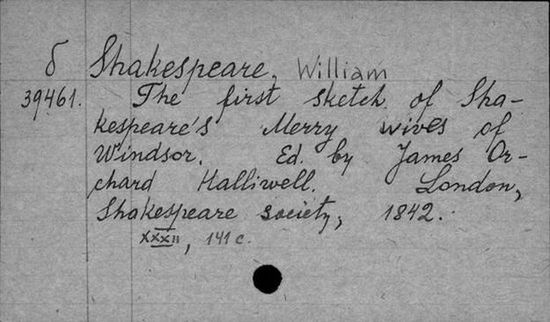 δ Shakespeare, William
39461. The first sketch of Sha-
kespeare's Merry wives of
Windsor. Ed. by James Or-
chard Halliwell. London,
Shakespeare society, 1842.
XXXII, 141 c.